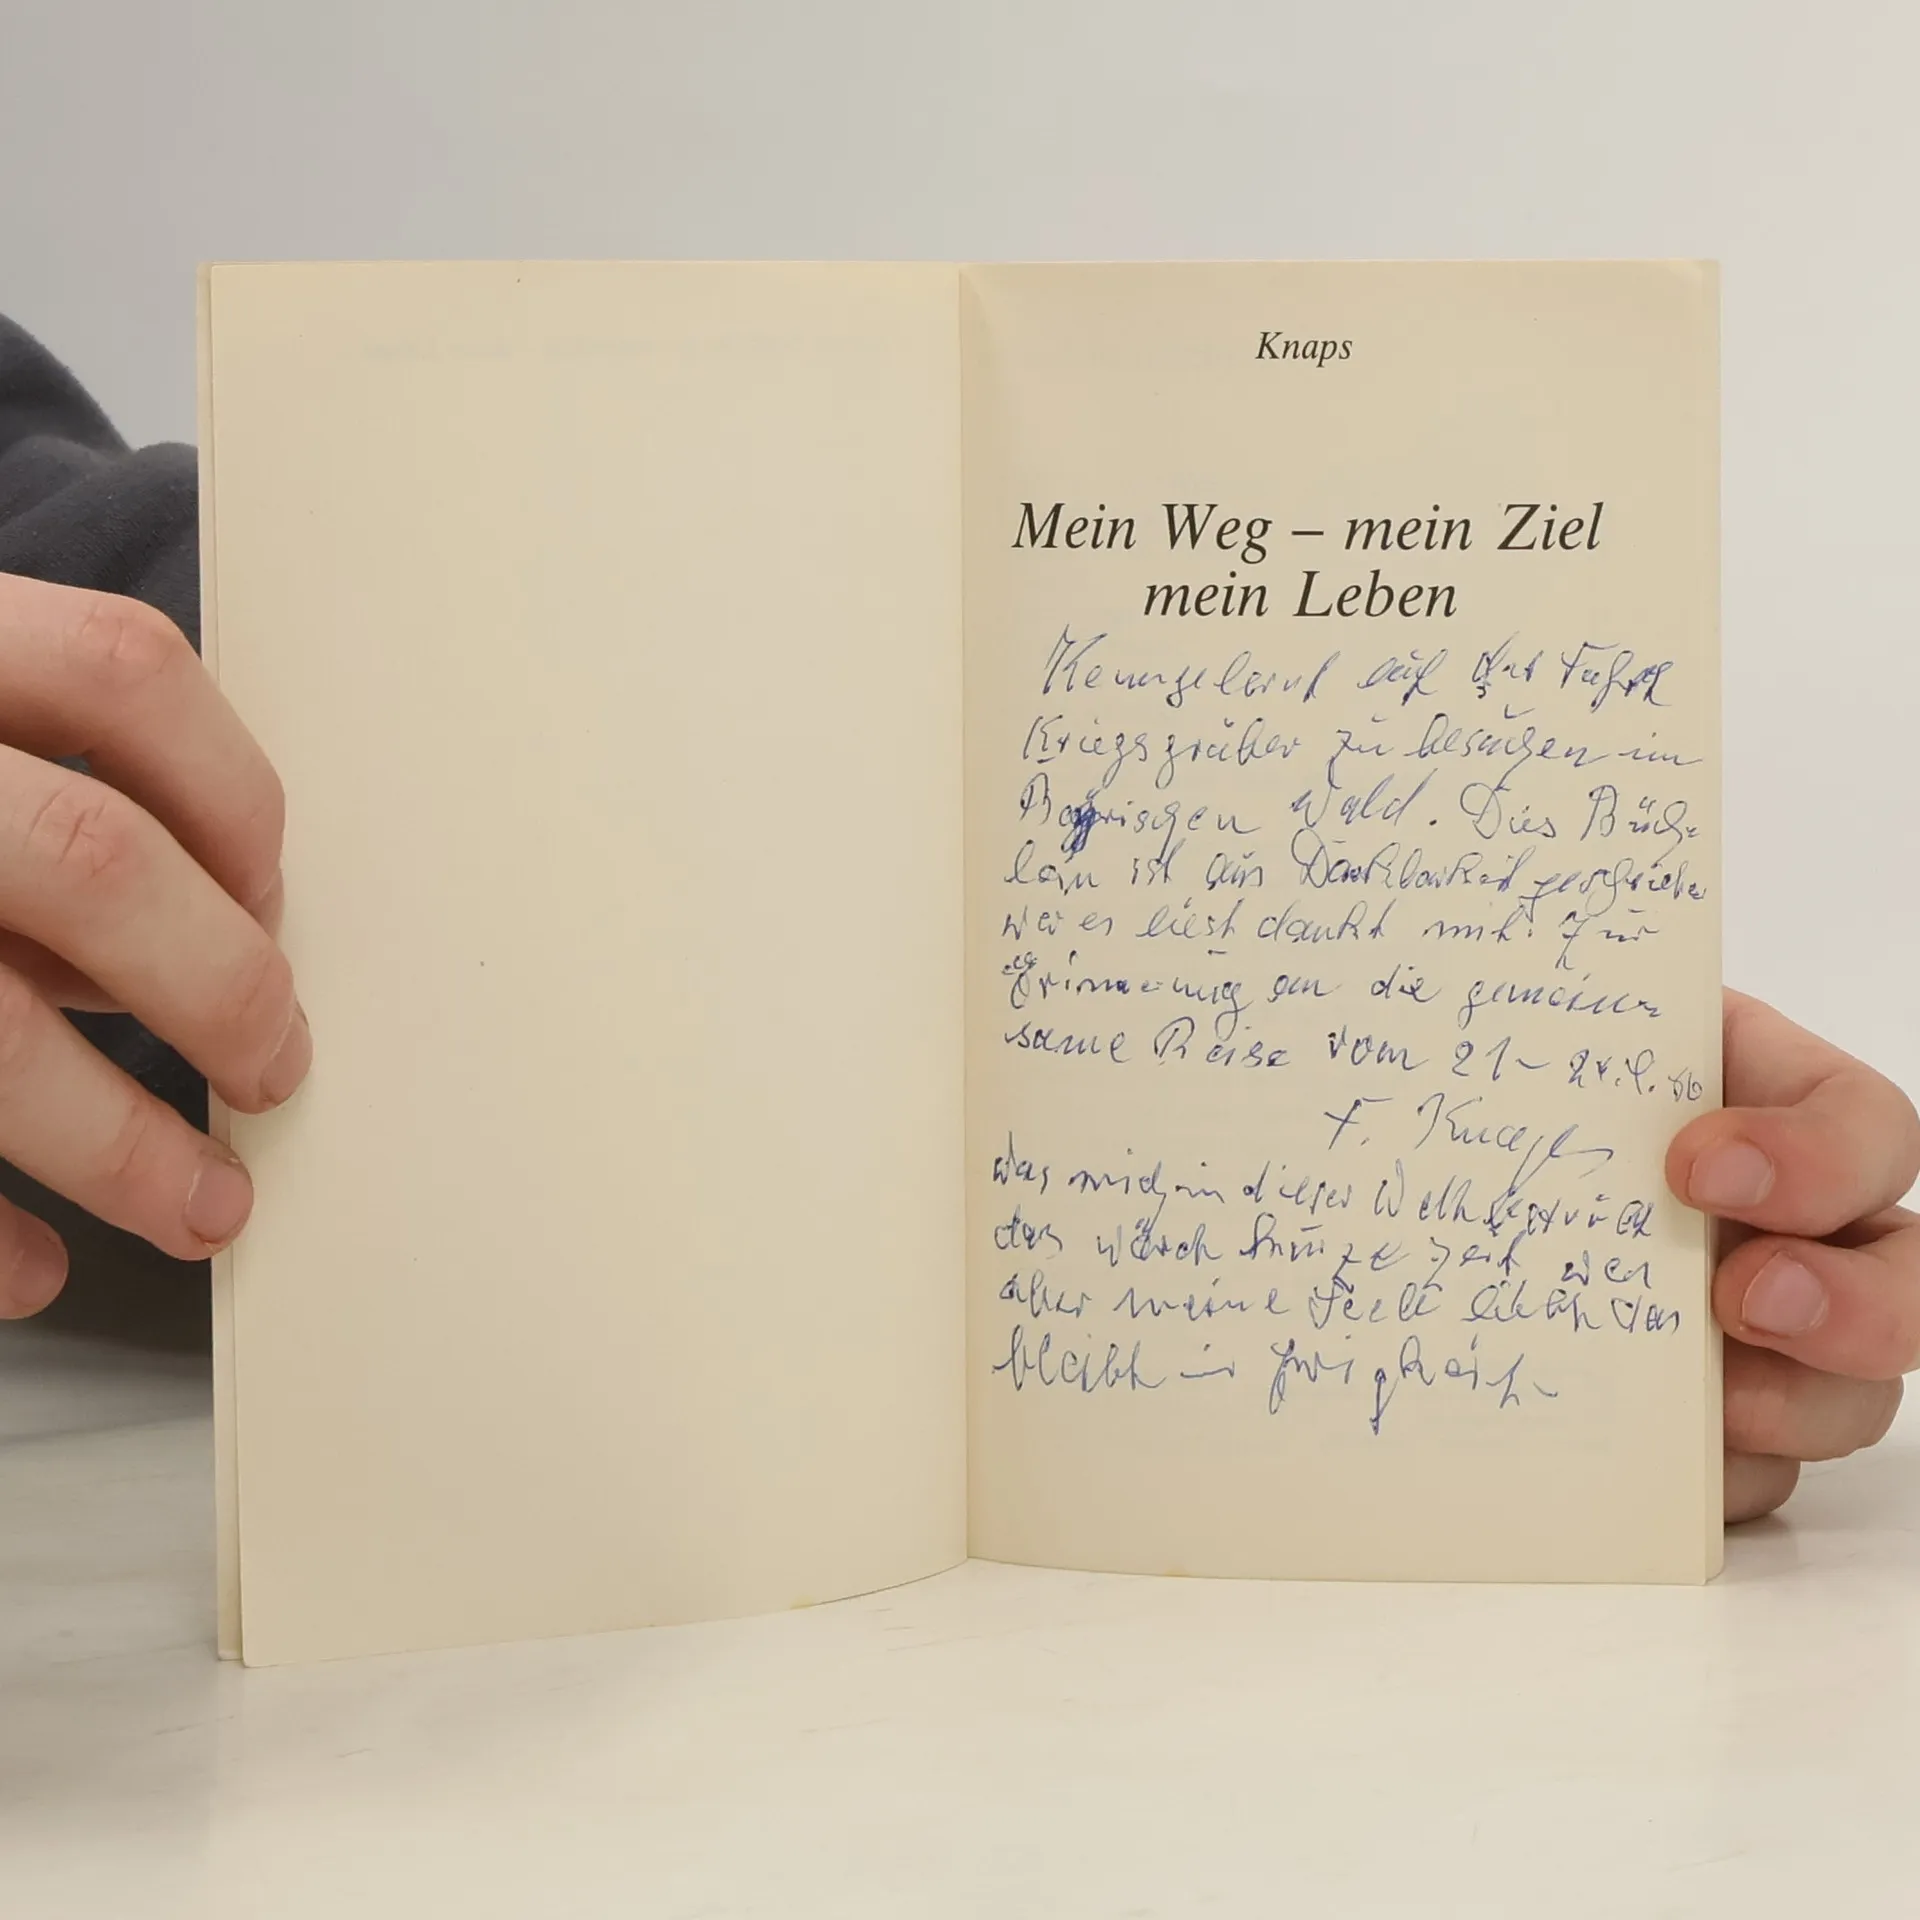 Knaps
Mein Weg – mein Ziel
mein Leben
Kenngelernt auf der Fahrt
Kriegsgräber zu besuchen im
Bayrischen Wald. Dies Büch-
lein ist aus Dankbarkeit geschrieben
wer es liest dankt mit. Zur
Erinnerung an die gemein
same Reise vom 21-
F. Knaps
was mich in dieser Welt
das währt kurze Zeit wen
aber meine Seele liebt das
bleibt in Ewigkeit